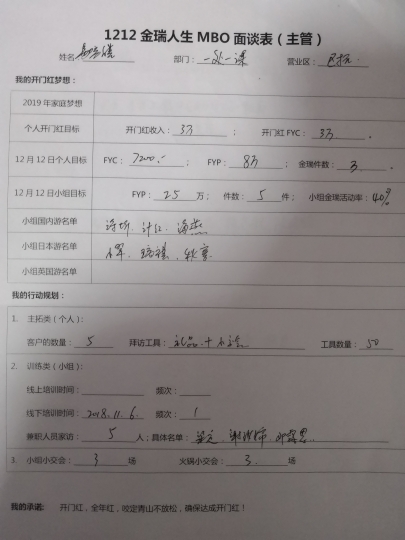 1212 金瑞人生 MBO 面谈表（主管）
姓名 部门：一处一课 营业区：
我的开门红梦想：
2019 年家庭梦想
个人开门红目标 开门红收入：3万 ； 开门红 FYC： 3万 。
12 月 12 日个人目标 FYC：7200.- ； FYP： 8万 ； 金瑞件数： 3 。
12 月 12 日小组目标 FYP： 25 万； 件数： 5 件； 小组金瑞活动率：40%
小组国内游名单
小组日本游名单
小组英国游名单
我的行动规划：
1. 主拓类（个人）：
客户的数量： 5 拜访工具： 礼品 + 工具数量： 50
2. 训练类（小组）
线上培训时间： 频次：
线下培训时间： 2018.11.6. 频次： 1
兼职人员家访： 5 人；具体名单：
3. 小组小交会： 3 场 火锅小交会： 3. 场
我的承诺： 开门红，全年红，咬定青山不放松，确保达成开门红！